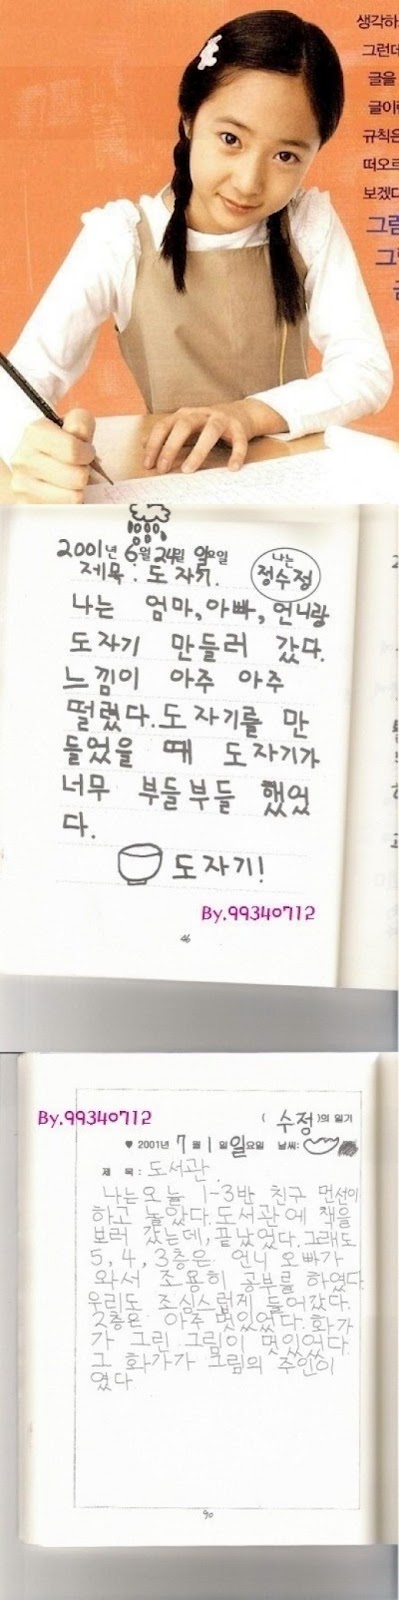 생각하
그런데
글을
글이란
규칙은
떠오르
보겠다
그림
2001년 6월 24일 일요일
제목 : 도자기.
나는
정수정
나는 엄마, 아빠, 언니랑
도자기 만들러 갔다.
느낌이 아주 아주
떨렸다. 도자기를 만
들었을 때 도자기가
너무 부들부들 했었
다.
도자기!
By.99340712
46
By.99340712
( 수정 )의 일기
♥ 2001년 7월 1일 일요일 날씨:
제 목 : 도서관.
나는 오늘 1-3반 친구 먼선이
하고 놀았다. 도서관에 책을
보러 갔는데, 끝났었다. 그래도
5, 4, 3층은 언니 오빠가
와서 조용히 공부를 하였다.
우리도 조심스럽게 들어갔다.
2층은 아주 멋있었다. 화가
가 그린 그림이 멋있었다.
그 화가가 그림의 주인이
였다.
90